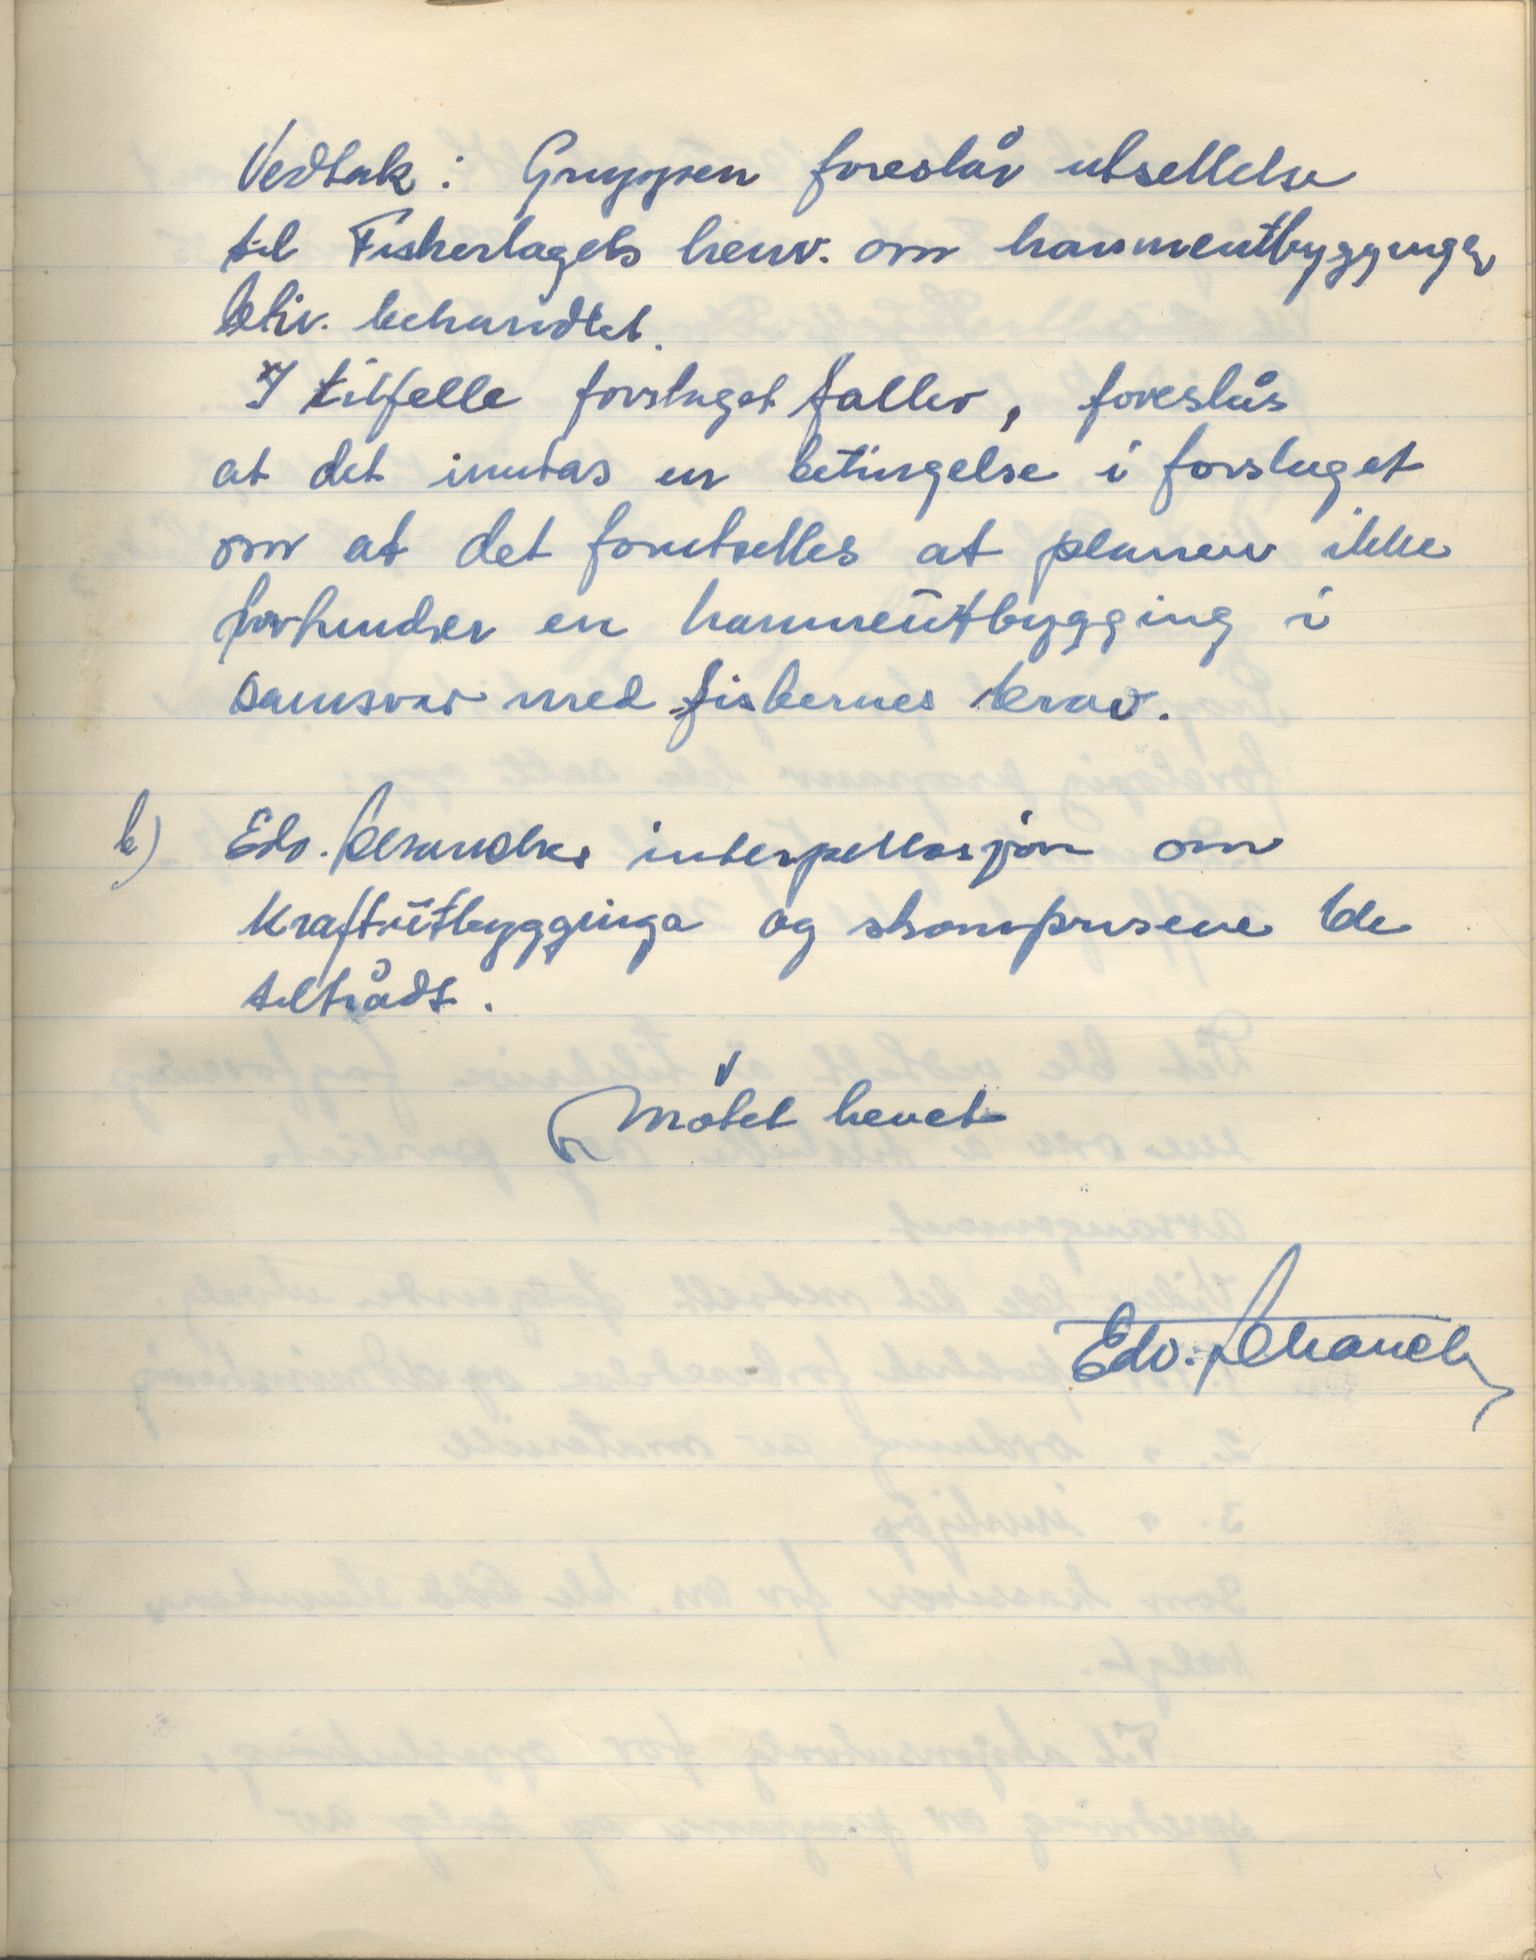 Vedtak: Gruppen foreslår utsettelse
til Fiskerlagets henv. om havneutbygginger
bliv. behandlet.
I tilfelle forslaget faller, foreslås
at det inntas en betingelse i forslaget
om at det forutsettes at planen ikke
forhindrer en havneutbygging i
samsvar med fiskernes krav.
b) Edv. interpellasjon om
kraftutbygginga og strømprisene ble
tiltrådt.
Møtet hevet
Edv.